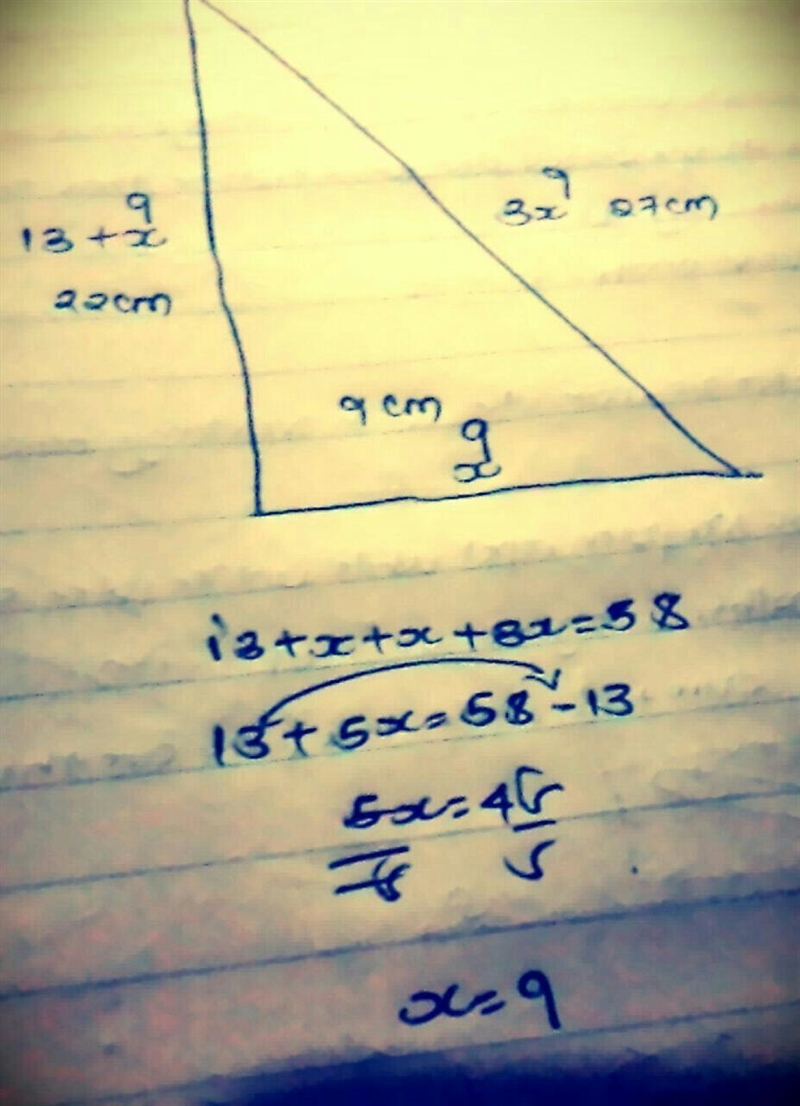 9
13 + x
22cm
9
3x 27cm
9 cm
9
x
13+x+x+3x=58
13+5x=58-13
5x=45
5 5
x=9